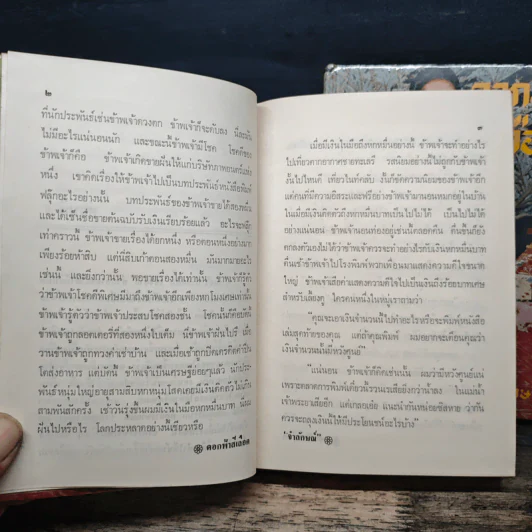 ๒
ที่นักประพันธ์เช่นข้าพเจ้าควงตก ข้าพเจ้าก็จะดับลง นี่ละมัน
ไม่มีอะไรแน่นอนนัก และขณะนี้ข้าพเจ้ามีโชค โชคดีของ
ข้าพเจ้าก็คือ ข้าพเจ้าเกิดขายฝันให้แก่บริษัทภาพยนตร์แห่ง
หนึ่ง เขาคิดเรื่องให้ข้าพเจ้าไปเป็นบทประพันธ์
ฟลุ๊กอะไรอย่างนั้น บทประพันธ์ของข้าพเจ้าขายได้สองหมื่น
และได้เซ็นชื่อขายต้นฉบับรับเงินเรียบร้อยแล้ว อะไรจะฟลุ๊ก
เท่าคราวนี้ ข้าพเจ้าขายเรื่องได้ยกหนึ่ง หรือตอนหนึ่งอย่างมาก
เพียงร้อยห้าสิบ แต่นี่ลบเข้าตอนสองหมื่น มันมากมายอะไร
เช่นนี้ และยิ่งกว่านั้น พอขายเรื่องได้เท่านั้น ข้าพเจ้าก็รู้
ว่าข้าพเจ้าโชคดีพิเศษมีมาถึงข้าพเจ้าอีกเพียงหกโมงเศษเท่านั้น
ข้าพเจ้ารู้ตัวว่าข้าพเจ้าประสบโชคสองชั้น โชคหนที่สองคือ
ข้าพเจ้าถูกลอตเตอรี่ที่สองหนึ่งใบเต็ม ข้าพเจ้ามีฝันไปรึ เมื่อ
วานข้าพเจ้าถูกทวงค่าเช่าบ้าน และเมื่อเช้าถูกปิดเครดิตค่าปิ่น
โตส่งอาหาร แต่บัดนี้ ข้าพเจ้าเป็นเศรษฐีย่อยๆแล้ว นักประ
พันธ์หนุ่มใหญ่อายุสามสิบหกหนุ่มโสดเคยมีเงินติดตัวไม่เกิน
สามพันสักครั้ง เช้าวันรุ่งขึ้นผมมีเงินในมือหกหมื่นบาท นี่ผม
ฝันไปหรือไร โลกประหลาดอย่างนี้เชียวหรือ
ดอกฟ้าสีเลือด
๓
เมื่อมีเงินในมือถึงหกหมื่นอย่างนี้ ข้าพเจ้าจะทำอย่างไร
ไปเที่ยวตากอากาศชายทะเลรึ รสนิยมอย่างนี้ไม่ถูกกับข้าพเจ้า
งั้นไปไหนดี เที่ยวไนท์คลับ งั้นก็ขัดความนิยมของข้าพเจ้าอีก
แต่คนที่มีความอิสระและฟรีอย่างข้าพเจ้ามานอนหมกอยู่ในบ้าน
ในเมื่อมีเงินติดตัวถึงหกหมื่นบาทเป็นไปไม่ได้ เป็นไปไม่ได้
อย่างแน่นอน ข้าพเจ้านอนต้องอยู่เช่นนั้นตลอดคืน คืนขึ้นก็ยัง
ตกลงตัวเองไม่ได้ว่าข้าพเจ้าควรจะทำอย่างไรกับเงินหกหมื่นบาท
ตื่นเช้าข้าพเจ้าไปโรงพิมพ์พรรคเพื่อนมาแสดงความดีใจขนาด
ใหญ่ ข้าพเจ้าเสือคำแสดงความดีใจไปเป็นเงินถึงร้อยบาทเศษ
สำหรับเลี้ยงดู ใครคนหนึ่งในหมู่เราถามว่า
“คุณจะเอาเงินจำนวนนี้ไปทำอะไรหรือจะพิมพ์หนังสือ
เล่มสุดท้ายของคุณ แต่ถ้าคุณพิมพ์ ผมอยากจะเตือนคุณว่า
เงินจำนวนนี้มีหวังศูนย์
แน่นอน ข้าพเจ้าก็คิดเช่นนั้น ผมว่ามีหวังศูนย์แน่
เพราะตลาดการพิมพ์เดี๋ยวนี้รวนเรเสียยิ่งกว่าน้ำลง ในแม่น้ำ
เจ้าพระยาเสียอีก แต่เกลอเอ๋ย แนะนำกันหน่อยซีสหาย ว่ากัน
ควรจะถลุงเงินนี้ให้มีประโยชน์อะไรบ้าง”
“อำลักษณ์”